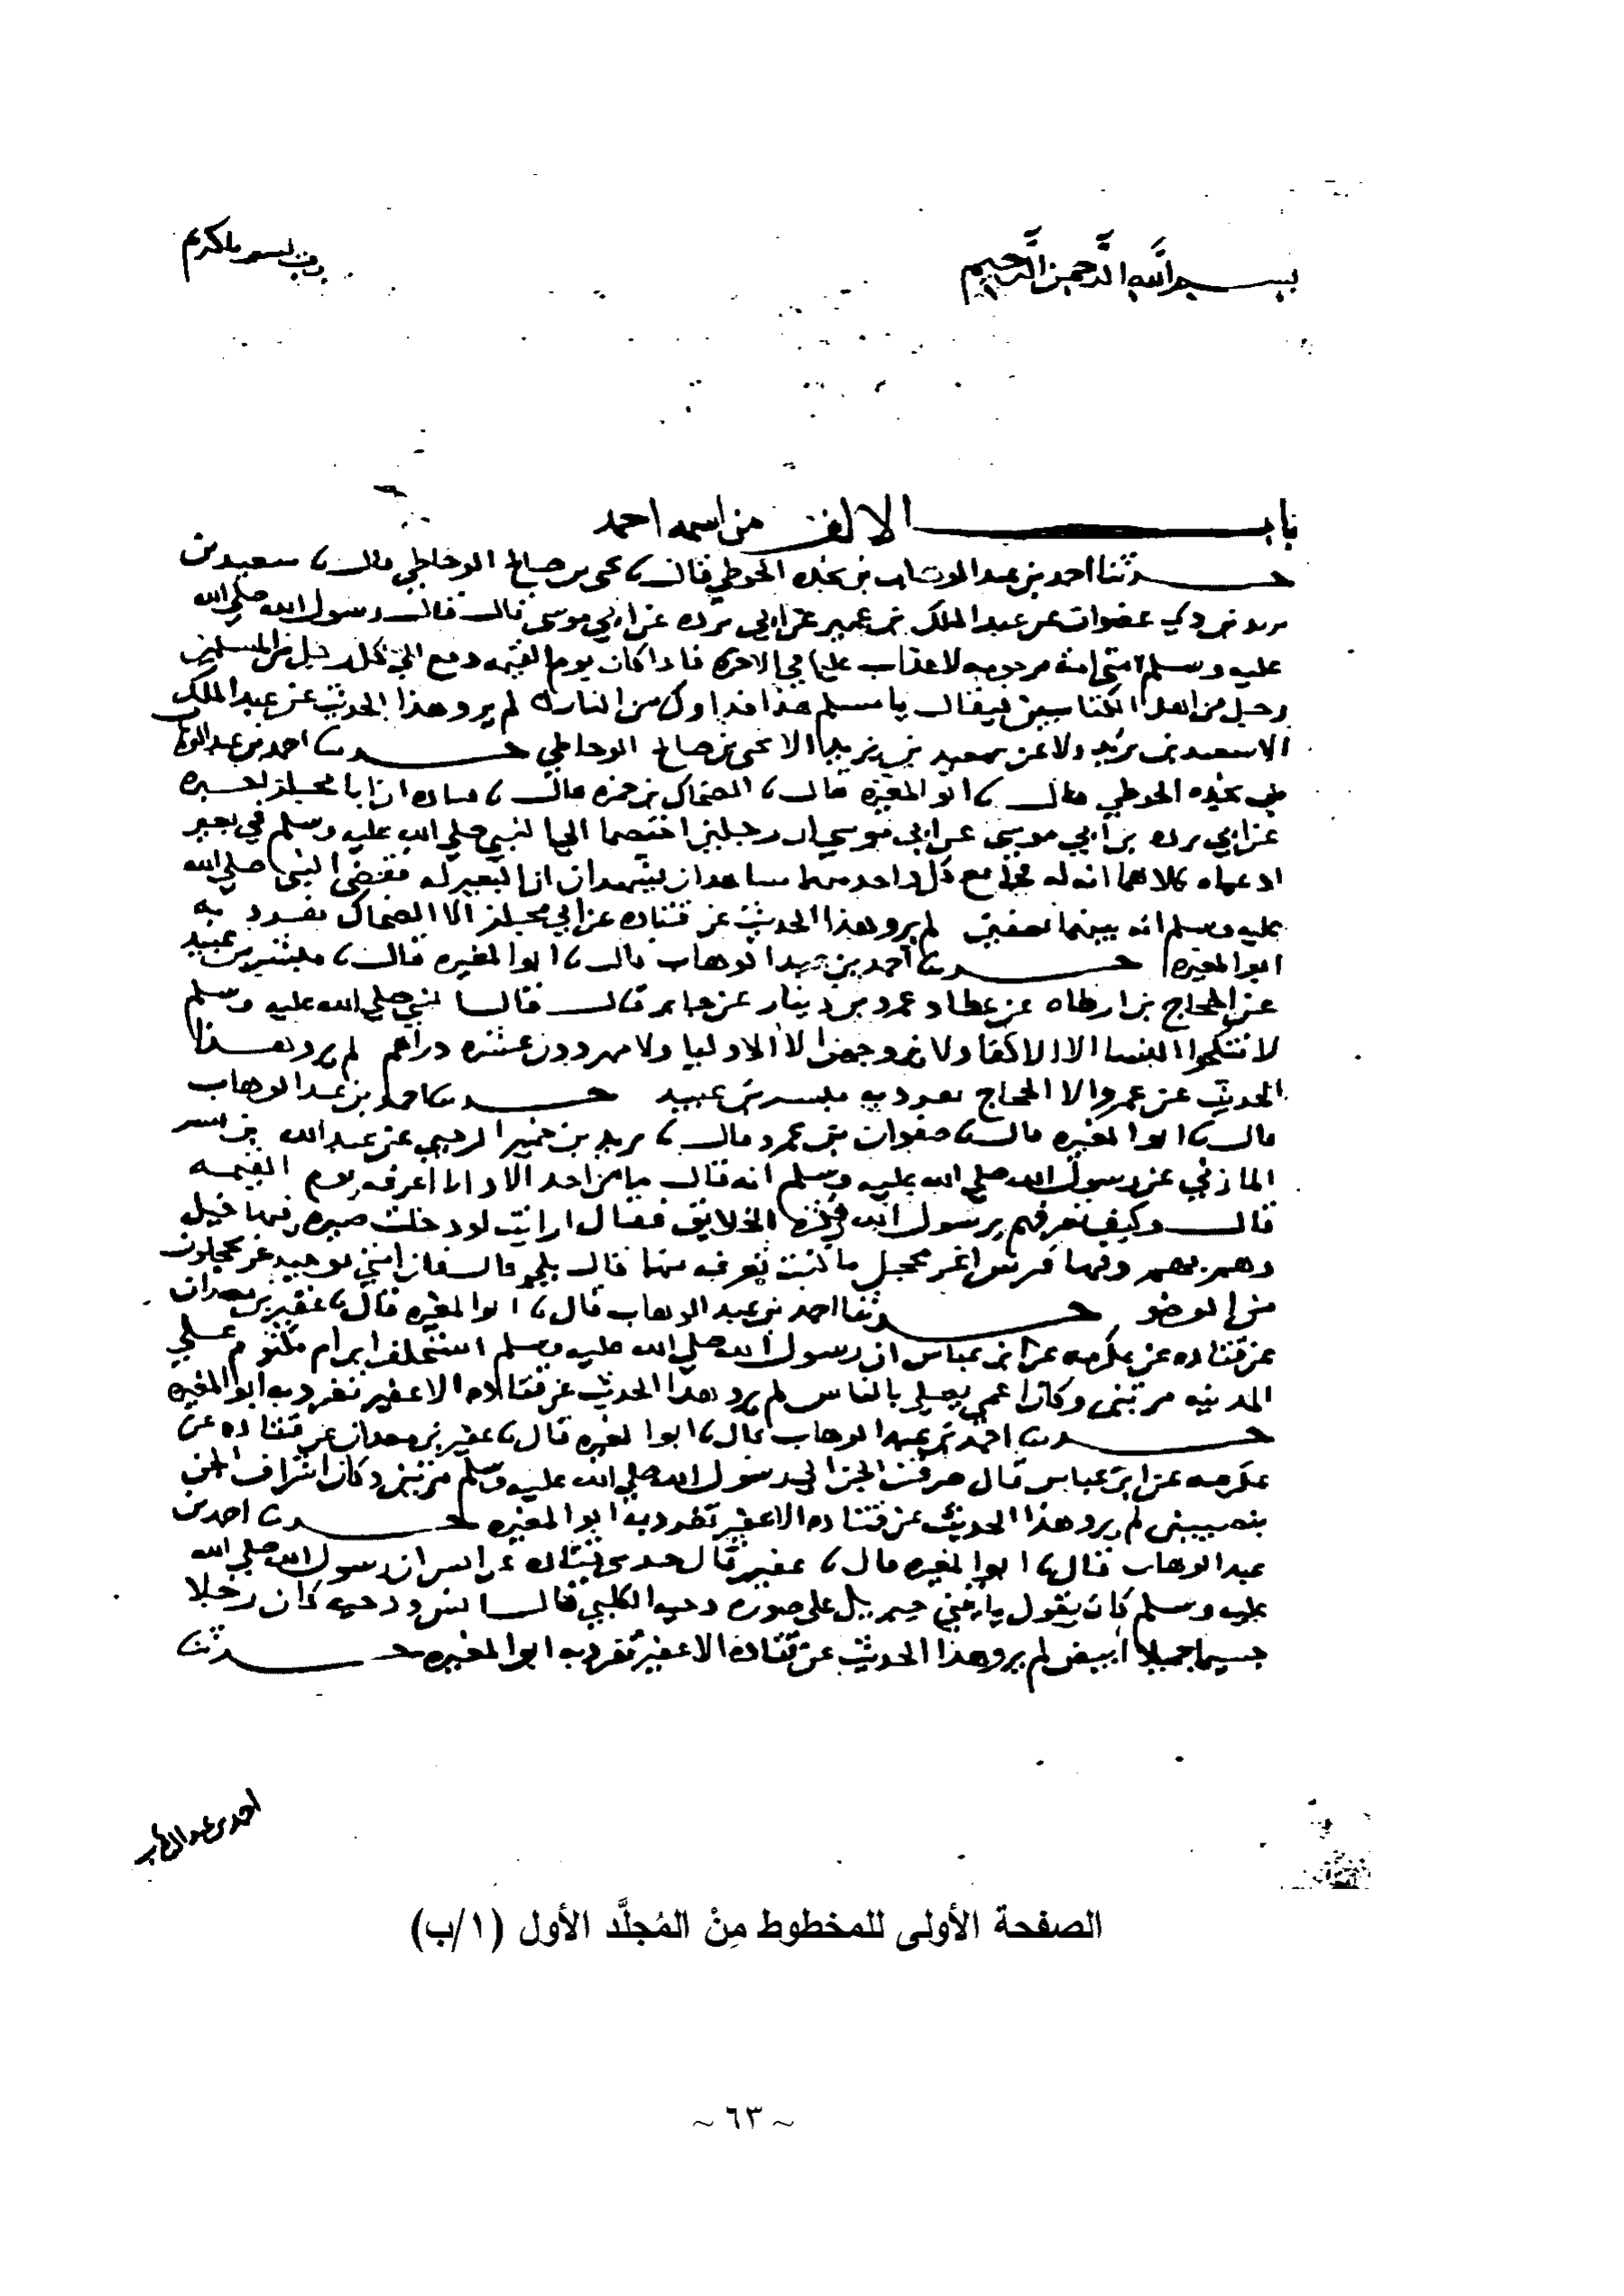 بسم الله الرحمن الرحيم
رب يسر يا كريم
باب الالف من اسمه احمد
حدثنا احمد بن عبد الوهاب بن نجده الحوطي قال نا يحيى بن صالح الوحاظي قال نا سعيد بن
عن عبد الملك بن عمير عن ابي برده عن ابي موسى قال قال رسول الله صلى الله
عليه وسلم امتي امة مرحومه لا عذاب عليها في الاخره فاذا كان يوم القيمه دفع الى كل رجل من المسلمين
رجل من اهل الكتابين فيقال يا مسلم هذا فداوك من النار لم يرو هذا الحديث عن عبد الملك
الا سعيد بن يزيد ولا عن سعيد بن يزيد الا يحيى بن صالح الوحاظي حدثنا احمد بن عبد الوهاب
بن نجده الحوطي قال نا ابو المغيره قال نا الضحاك بن حمزه قال نا قتاده ان ابا مجلز اخبره
عن ابي برده بن ابي موسى عن ابي موسى ان رجلين اختصما الى النبي صلى الله عليه وسلم في بعير
ادعياه كلاهما انه له فجا مع كل واحد منهما شاهدان يشهدان ان البعير له فقضى النبي صلى الله
عليه وسلم انه بينهما نصفين لم يرو هذا الحديث عن قتاده عن ابي مجلز الا الضحاك تفرد به
ابو المغيره حدثنا احمد بن عبد الوهاب قال نا ابو المغيره قال نا مبشر بن عبيد
عن الحجاج بن ارطاه عن عطا و عمرو بن دينار عن جابر قال قال النبي صلى الله عليه وسلم
لا تنكحوا النسا الا الاكفا ولا يزوجهن الا الاوليا ولا مهر دون عشره دراهم لم يرو هذا
الحديث عن عمرو الا الحجاج تفرد به مبشر بن عبيد حدثنا احمد بن عبد الوهاب
قال نا ابو المغيره قال نا صفوان بن عمرو قال نا يزيد بن خمير الرحبي عن عبد الله بن بسر
المازني عن رسول الله صلى الله عليه وسلم انه قال ما من احد الا وانا اعرفه يوم القيمه
قال وكيف تعرفهم يرسول الله في كثرة الخلايق فقال ارايت لو دخلت صيره فيها خيل
دهم بهم وفيها فرس اغر محجل ما كنت تعرفه منها قال بلى قال فان امتي يوميذ غر محجلون
من الوضو حدثنا احمد بن عبد الوهاب قال نا ابو المغيره قال نا عفير بن معدان
عن قتاده عن عكرمه عن ابن عباس ان رسول الله صلى الله عليه وسلم استخلف ابن ام مكتوم على
المدينه مرتين وكان اعمى يصلي بالناس لم يرو هذا الحديث عن قتاده الا عفير تفرد به ابو المغيره
حدثنا احمد بن عبد الوهاب قال نا ابو المغيره قال نا عفير بن معدان عن قتاده عن
عكرمه عن ابن عباس قال صرفت الجن الى رسول الله صلى الله عليه وسلم مرتين وكان اشراف الجن
بنصيبين لم يرو هذا الحديث عن قتاده الا عفير تفرد به ابو المغيره حدثنا احمد بن
عبد الوهاب قال نا ابو المغيره قال نا عفير قال حدثني قتاده عن انس ان رسول الله صلى الله
عليه وسلم كان يقول ياتيني جبريل على صورة دحيه الكلبي قال انس ودحيه كان رجلا
جسيما جميلا ابيض لم يرو هذا الحديث عن قتاده الا عفير تفرد به ابو المغيره حدثنا
احمد بن عبد الوهاب
الصفحة الأولى للمخطوط مِنْ المُجلَّد الأول (١/ب)
~ ٦٣ ~